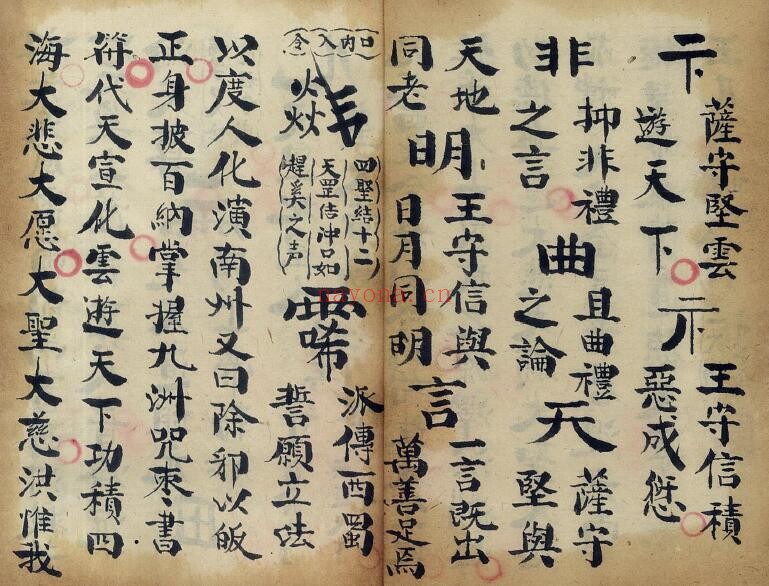 薩守堅雲
遊天下
王守信積
惡成愆
非
抻非禮
之言
曲
且曲禮
之論
天
薩守
堅與
天地
同老
明
王守信與
日月同明
言
一言既出
萬善足焉
口内入令
四聖结十二
天罡佶冲口如
趕奚之声
派傳西蜀
誓願立法
以度人化演南州又曰除邪以皈
正身披百納掌握九洲咒棗書
符代天宣化雲遊天下功積四
海大悲大愿大聖大慈洪惟我
nayona.cn